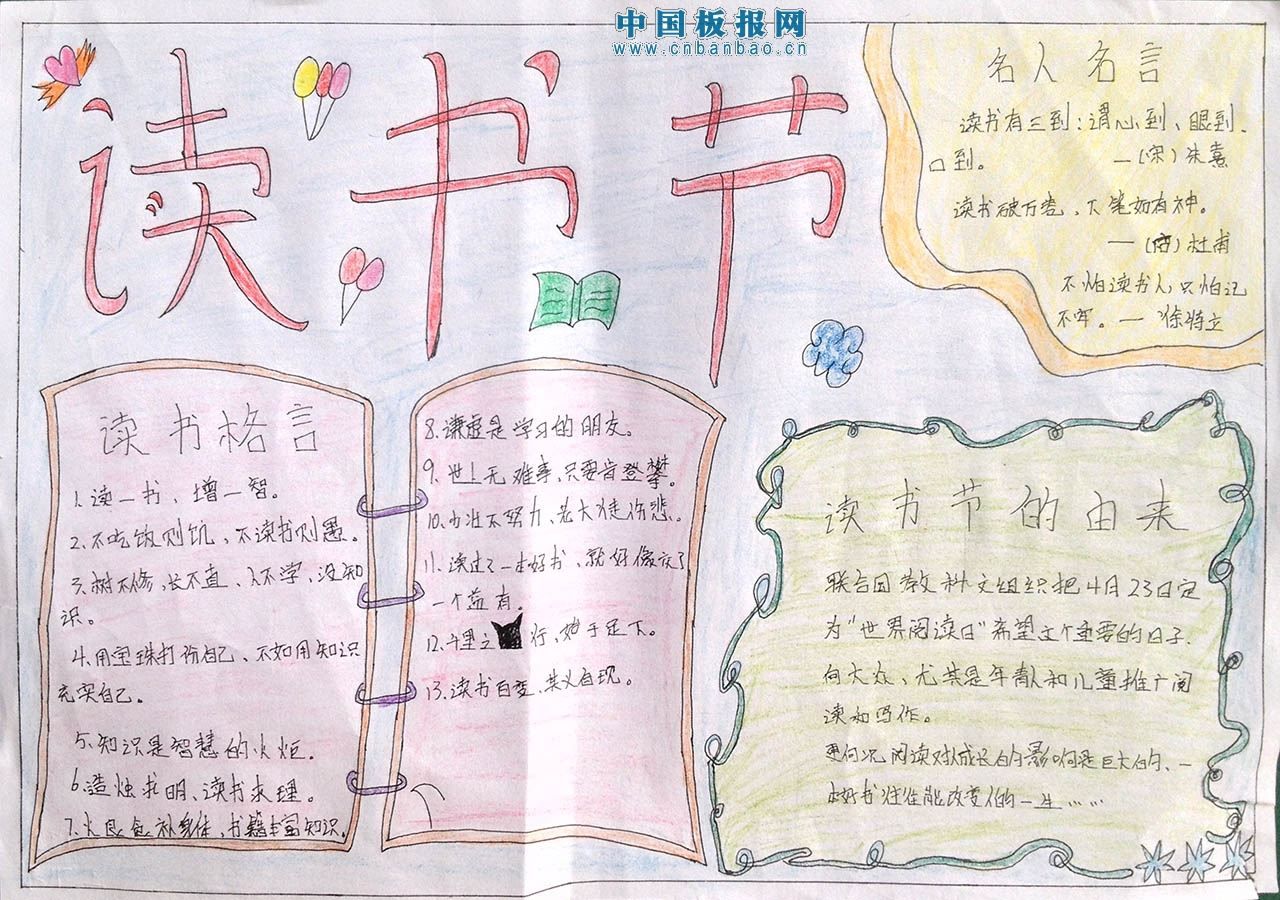 中国板报网
www.cnbanbao.cn
读书节
名人名言
读书有三到：谓心到、眼到、
口到。
—（宋）朱熹
读书破万卷、下笔如有神。
—（唐）杜甫
不怕读书人，只怕记
不牢。— 徐特立
读书格言
1.读一书、增一智。
2.不吃饭则饥、不读书则愚。
3.树不修，长不直、人不学，没知
识。
4.用宝珠打扮自己、不如用知识
充实自己。
5.知识是智慧的火炬。
6.造烛求明、读书求理。
7.大良食补身体，书籍丰富知识。
8.谦虚是学习的朋友。
9.世上无难事、只要肯登攀。
10.少壮不努力、老大徒伤悲。
11.读过了一本好书、就好像交了
一个益有。
12.千里之行，始于足下。
13.读书百变、其义自现。
读书节的由来
联合国教科文组织把4月23日定
为“世界阅读日”希望这个重要的日子.
向大众、尤其是年轻人和儿童推广阅
读和写作。
更何况阅读对成长的影响是巨大的、一
本好书往往能改变人的一生……